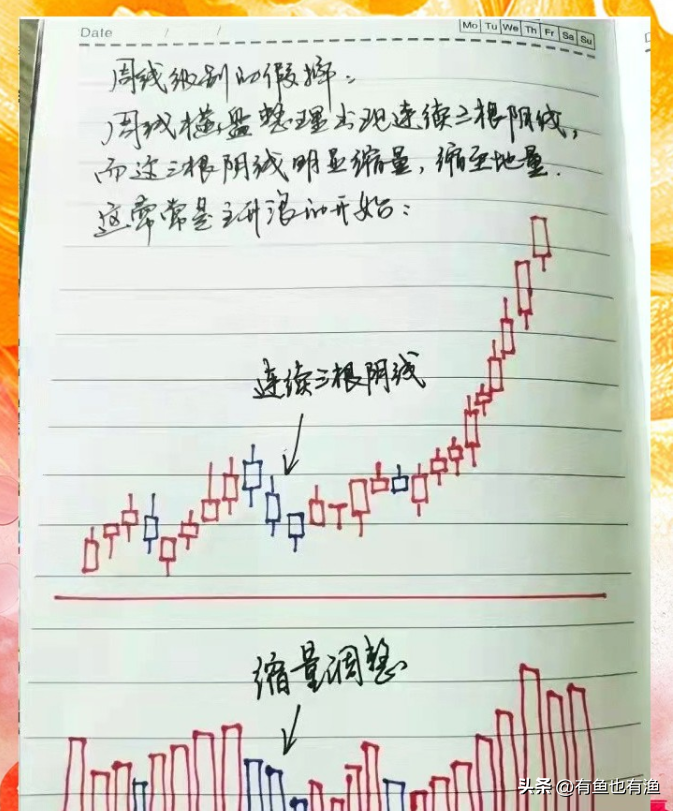 Date / /
Mo Tu We Th Fr Sa Su
周线级别的假摔：
周线横盘整理出现连续三根阴线，
而这三根阴线明显缩量，缩至地量.
这常常是主升浪的开始：
连续三根阴线
缩量调整
头条 @有鱼也有渔